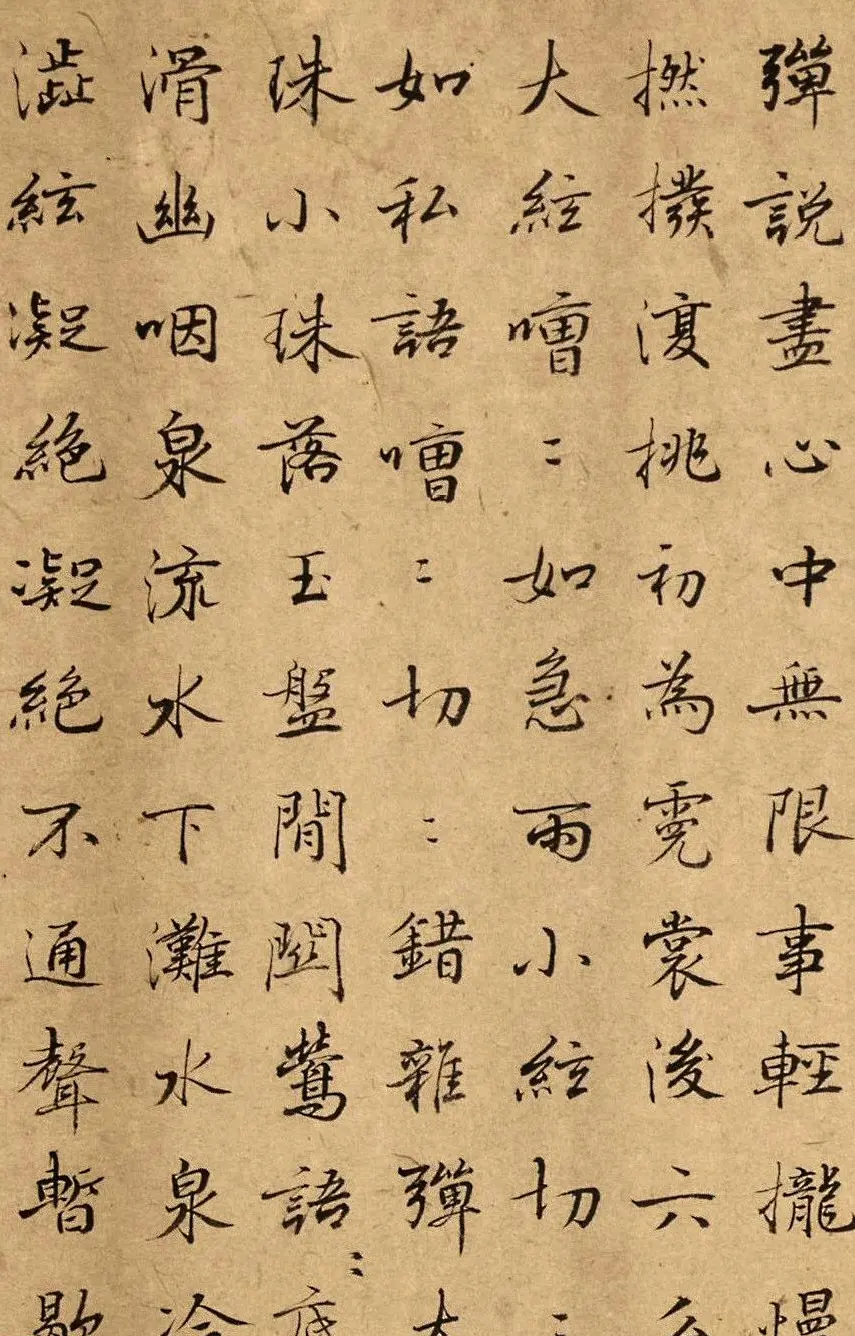 彈說盡心中無限事輕攏慢
撚撥復挑初為霓裳後六么
大絃嘈〻如急雨小絃切〻
如私語嘈〻切〻錯雜彈大
珠小珠落玉盤間關鶯語〻底
滑幽咽泉流水下灘水泉冷
澁絃凝絕凝絕不通聲暫歇